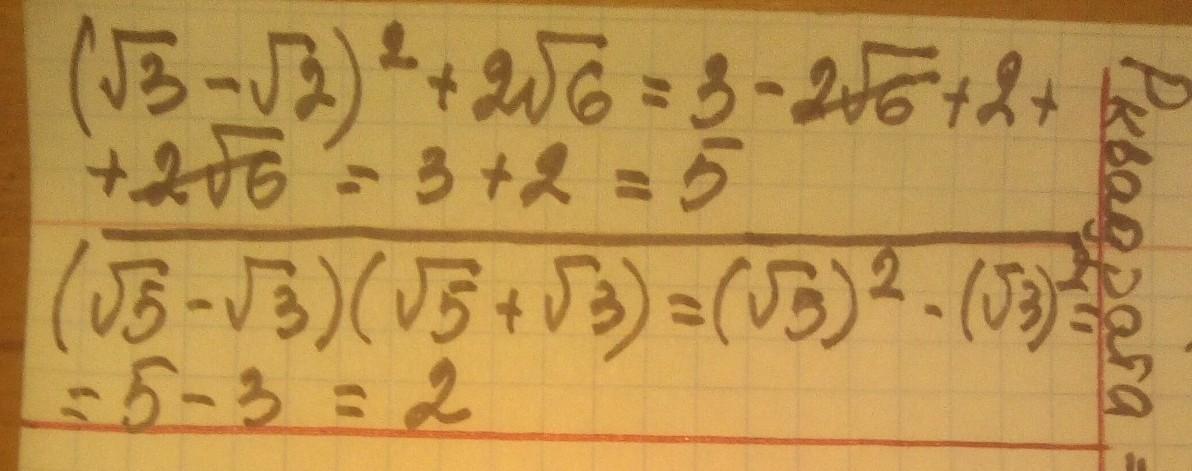 (√3 - √2)² + 2√6 = 3 - 2√6 + 2 +
+ 2√6 = 3 + 2 = 5
(√5 - √3)(√5 + √3) = (√5)² - (√3)² =
= 5 - 3 = 2
Pквадрата =